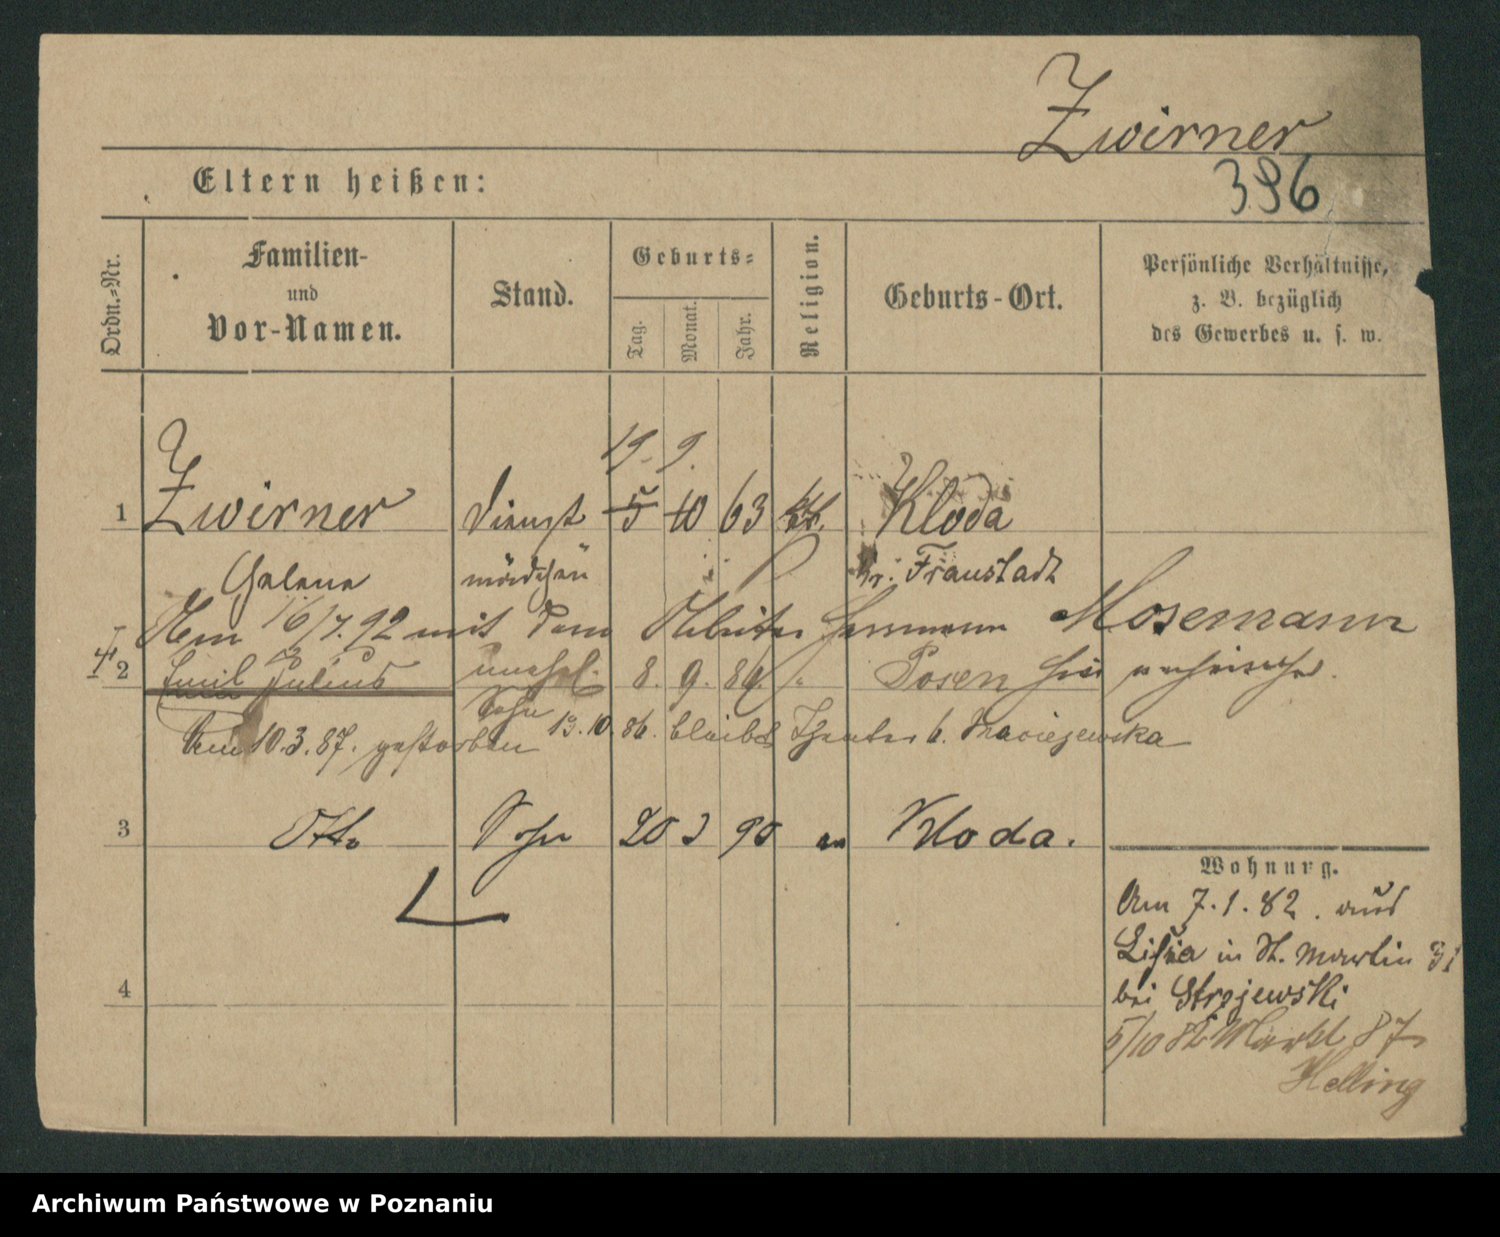 Zwirner
396
Eltern heißen:
Ordn.-Nr.
Familien-
und
Vor-Namen.
Stand.
Geburts-
Tag.
Monat.
Jahr.
Religion.
Geburts-Ort.
Persönliche Verhältnisse,
z. B. bezüglich
des Gewerbes u. s. w.
19. 9.
1 Zwirner Dienst 5 10 63 Kloda
Helene mädchen Kr. Fraustadt
Am 16/7. 92 mit dem Arbeiter Hermann Mosemann
2 Emil Julius unehel. 8. 9. 86. " Posen hier
Sohn
Am 10.3.87. gestorben 13.10.86. bleibt b. Maciejewska
3 Otto Sohn 20 3 90 Kloda.
Wohnung.
Am 7.1.82. aus
Lissa in St. Martin 31
bei Strojewski
5/10 82 Markt 87
Helling
4
Archiwum Państwowe w Poznaniu